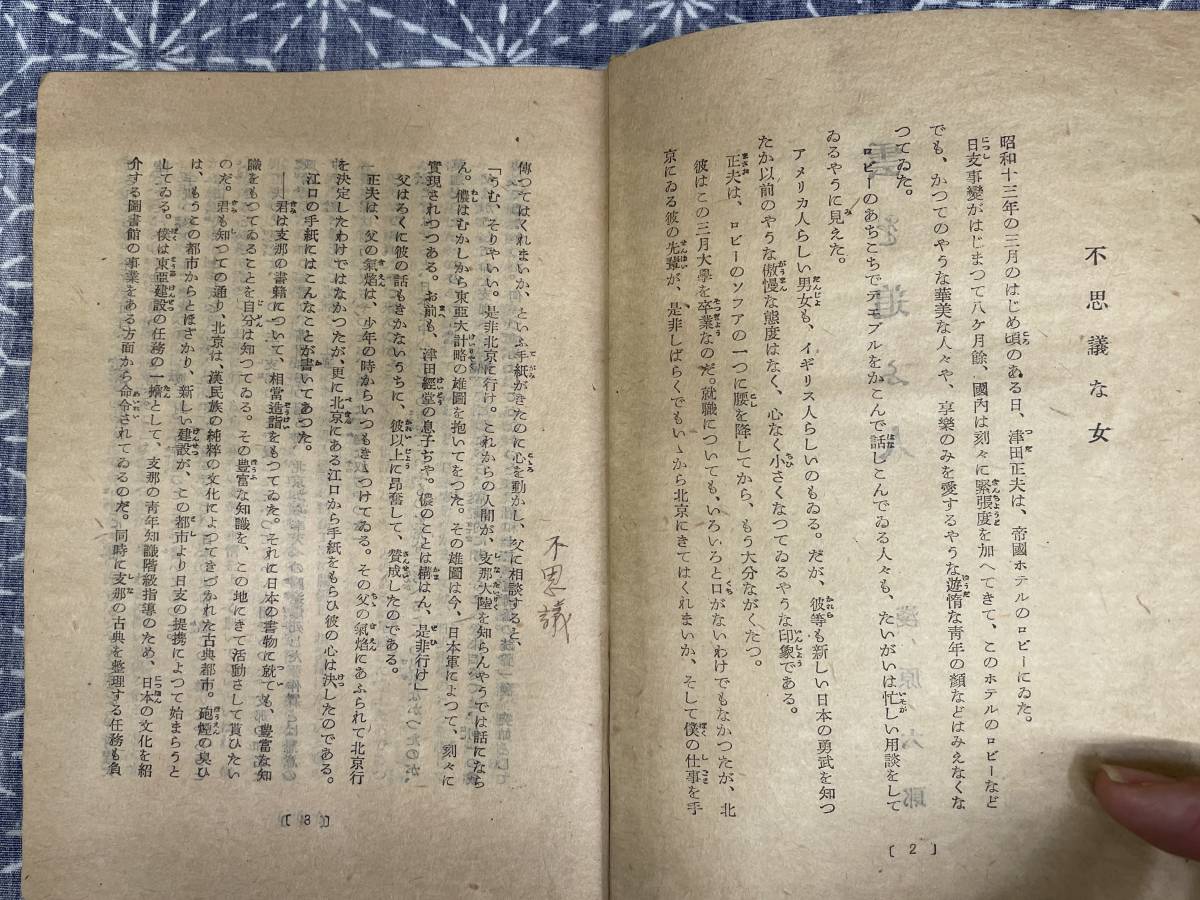 不思議な女
昭和十三年の三月のはじめ頃のある日、津田正夫は、帝國ホテルのロビーにゐた。
日支事變がはじまつて八ケ月餘、國內は刻々に緊張度を加へてきて、このホテルのロビーなど
でも、かつてのやうな華美な人々や、享樂のみを愛するやうな遊惰な青年の顔などはみえなくな
つてゐた。
ロビーのあちこちでテエブルをかこんで話しこんでゐる人々も、たいがいは忙しい用談をして
ゐるやうに見えた。
アメリカ人らしい男女も、イギリス人らしいのもゐる。だが、彼等も新しい日本の勇武を知つ
たか以前のやうな傲慢な態度はなく、心なく小さくなつてゐるやうな印象である。
正夫は、ロビーのソフアの一つに腰を降してから、もう大分ながくたつ。
彼はこの三月大學を卒業なのだ。就職についても、いろいろと口がないわけでもなかつたが、北
京にゐる彼の先輩が、是非しばらくでもいゝから北京にきてはくれまいか、そして僕の仕事を手
〔 2 〕
傳つてはくれまいか、といふ手紙がきたのに心を動かし、父に相談すると、
「うむ、そりやいい。是非北京に行け。これからの人間が、支那大陸を知らんやうでは話になら
ん。儂はむかしから東亞大計略の雄圖を抱いてをつた。その雄圖は今、日本軍によつて、刻々に
實現されつつある。お前も、津田經堂の息子ぢや。儂のことは構はん、是非行け」
父はろくに彼の話もきかないうちに、彼以上に昂奮して、賛成したのである。
正夫は、父の氣焰は、少年の時からいつもきゝつけてゐる。その父の氣焰にあふられて北京行
を決定したわけではなかつたが、更に北京にある江口から手紙をもらひ彼の心は決したのである。
江口の手紙にはこんなことが書いてあつた。
――君は支那の書籍について、相當造詣をもつてゐた。それに日本の書物に就ても、豊富な知
識をもつてゐることを自分は知つてゐる。その豊富な知識を、この地にきて活動さして貰ひたい
のだ。君も知つての通り、北京は、漢民族の純粹の文化によつてきづかれた古典都市。砲煙の臭ひ
は、もうこの都市からとほざかり、新しい建設が、この都市より日支の提携によつて始まらうと
してゐる。僕は東亞建設の任務の一擔として、支那の青年知識階級指導のため、日本の文化を紹
介する圖書館の事業をある方面から命令されてゐるのだ。同時に支那の古典を整理する任務も負
〔 3 〕
不思議